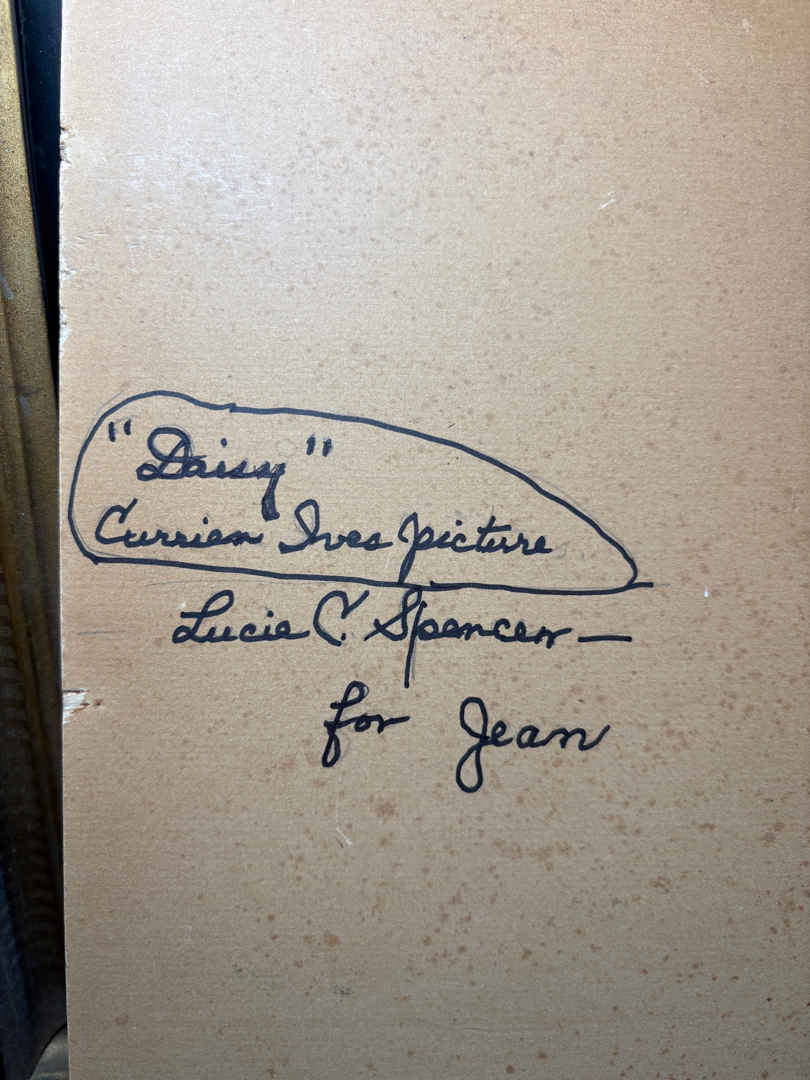 "Daisy"
Currier Ives picture
Lucie C. Spencer —
for Jean